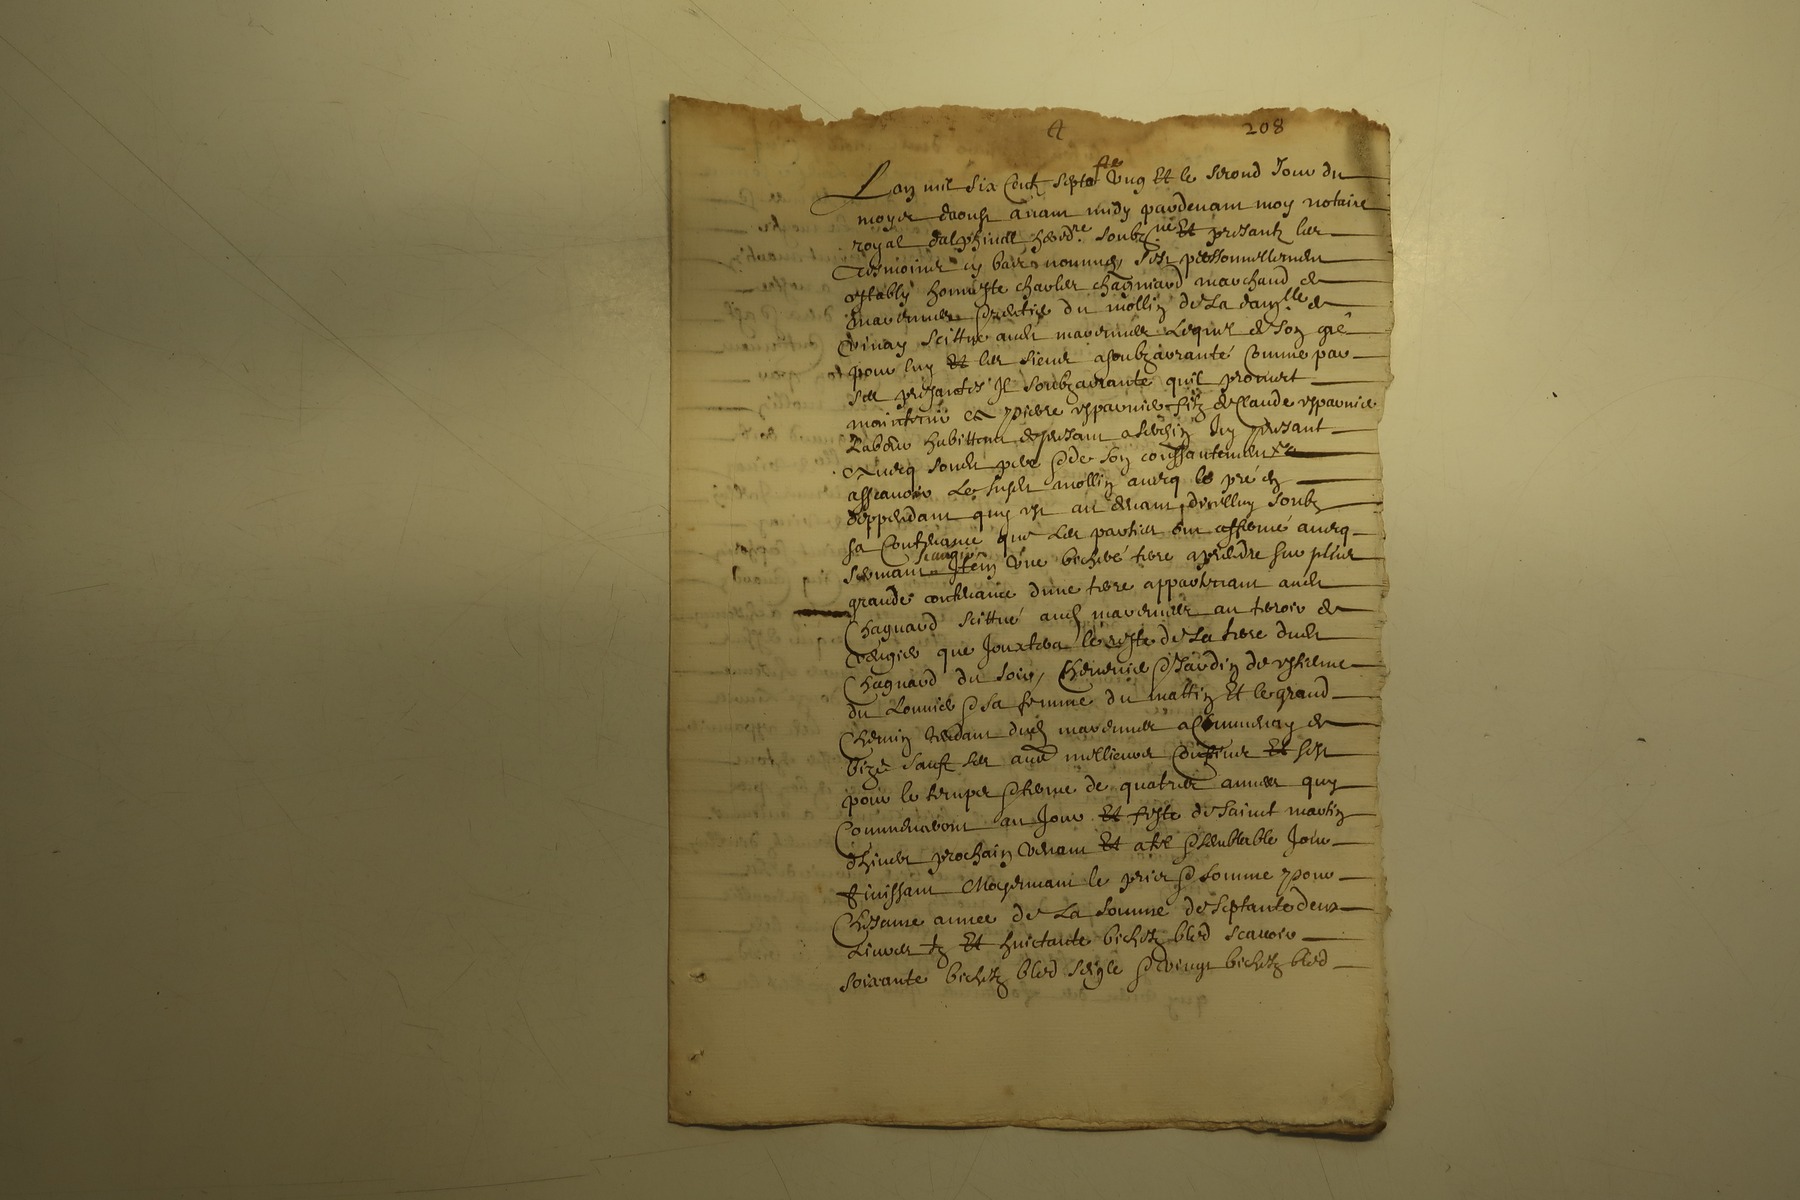 A 208
Lan mil six Centz septa^te Ung Et le second Jour du
moys daoust avant midy pardevant moy notaire
royal dalphinal hered^re soubz^né Et presantz les
tesmoins cy bas nommes sest personnellement
estably honneste charles chagniard marchand de
du mollin de La dam^lle de
Vinay scittué aud^t Lequel de son gré
pour luy Et les siens a soubzarranté Comme par
ses presantes Il soubzarrante quil promect
maintenir A pierre esparvier filz de Claude esparvier
Labour habittant de presant a Icy presant
Avecq son d^t pere & de son consantement
assavoir Le susd^t mollin avecq le pré en
deppendant quy est au devant dicelluy soubz
sa Contenance que Les parties ont affermé avecq
Une bicheré terre a prendre sur plus
grande contenance dune terre appartenant aud^t
Chagnard scittué aud^t au terroir de
que Jouxtera le reste de La terre dud^t
Chagnard du soir, & Jardin de
du & sa femme du mattin Et le grand
Chemin tendant dud^t a de
bize sauf ses aud^t meilleures Confines Et sest
pour le temps & terme de quatres annees quy
Commenceront au Jour Et feste de Saint martin
dhiver prochain Venant Et a tel & semblable Jour
finissant Moyennant le pris & somme pour
Chescune annee de La somme de septante deux
Livres tz Et huictante bichetz bled scavoir
soixante bichetz bled seigle & vingt bichetz bled